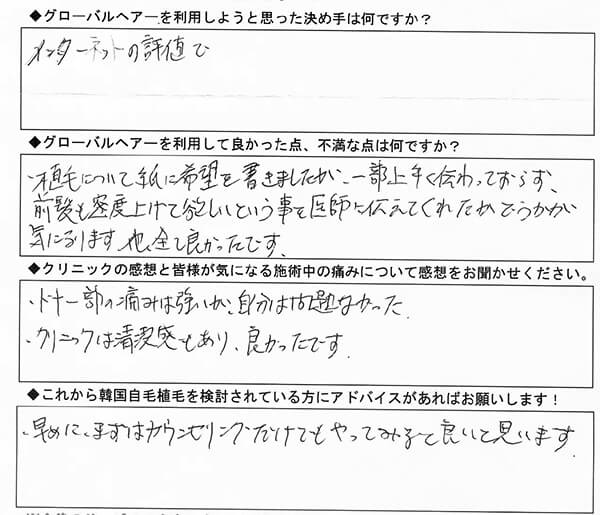 ◆グローバルヘアーを利用しようと思った決め手は何ですか？
インターネットの評価で
◆グローバルヘアーを利用して良かった点、不満な点は何ですか？
・植毛について紙に希望を書きましたが、一部上手く伝わっておらず、
前髪も密度上げて欲しいという事を医師に伝えてくれたかどうかが
気になります 他、全て良かったです。
◆クリニックの感想と皆様が気になる施術中の痛みについて感想をお聞かせください。
・ドナー部の痛みは強いが、自分は問題なかった.
・クリニックは清潔感もあり、良かったです.
◆これから韓国自毛植毛を検討されている方にアドバイスがあればお願いします！
・早めに、まずはカウンセリングだけでもやってみると良いと思います.